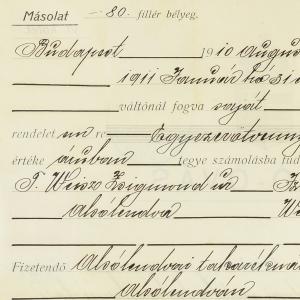 Másolat -80.- fillér bélyeg.
Budapest 1910 augu
1911 Január hó 31
váltónál fogva saját
rendelet en re Egyezerötven
értéke áruban tegye számolásba tud
T. Weisz Zsigmond úr
Alsólendva
Fizetendő Alsólendvai takarékn
Alsólendván